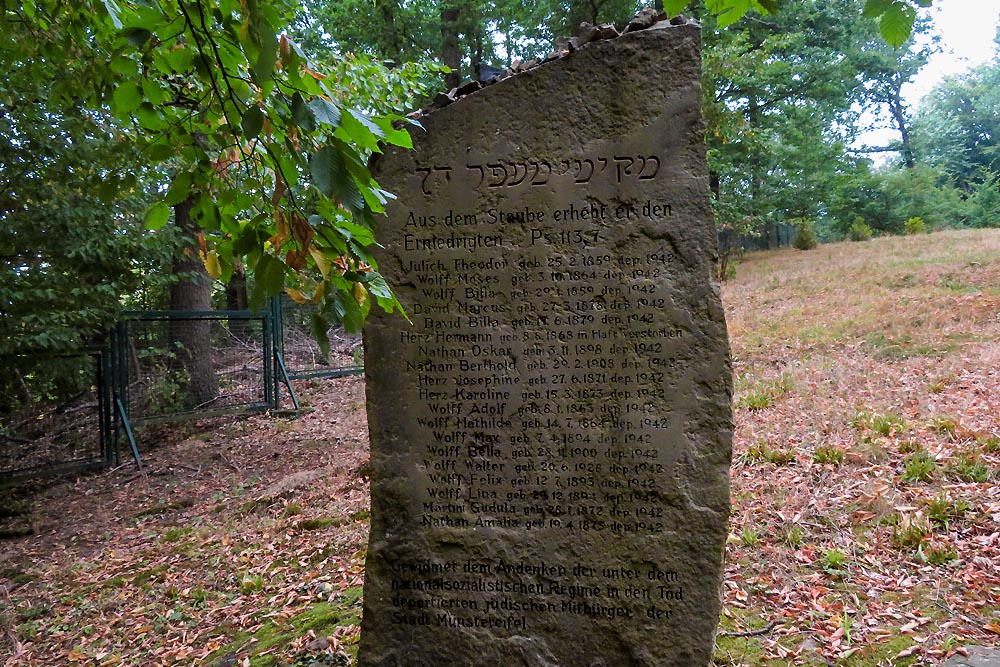 מקימי מעפר דך
Aus dem Staube erhebt er den
Erniedrigten . Ps. 113,7
Jülich Theodor geb. 25. 2. 1859 dep. 1942
Wolff Moses geb. 3. 10. 1864 dep. 1942
Wolff Billa geb. 29. 1. 1859 dep. 1942
David Marcus geb. 27. 3. 1878 dep. 1942
David Billa geb. 17. 6. 1879 dep. 1942
Herz Hermann geb. 8. 6. 1868 in Haft verstorben
Nathan Oskar geb. 3. 11. 1898 dep. 1942
Nathan Berthold geb. 29. 2. 1908 dep. 1942
Herz Josephine geb. 27. 6. 1871 dep. 1942
Herz Karoline geb. 15. 3. 1873 dep. 1942
Wolff Adolf geb. 8. 1. 1863 dep. 1942
Wolff Mathilde geb. 14. 7. 1868 dep. 1942
Wolff Max geb. 7. 4. 1894 dep. 1942
Wolff Bella geb. 28. 11. 1900 dep. 1942
Wolff Walter geb. 20. 6. 1926 dep. 1942
Wolff Felix geb. 12. 7. 1893 dep. 1942
Wolff Lina geb. 29. 12. 1894 dep. 1942
Martini Gudula geb. 26. 1. 1872 dep. 1942
Nathan Amalia geb. 19. 4. 1875 dep. 1942
Gewidmet dem Andenken der unter dem
nationalsozialistischen Regime in den Tod
deportierten jüdischen Mitbürger der
Stadt Münstereifel